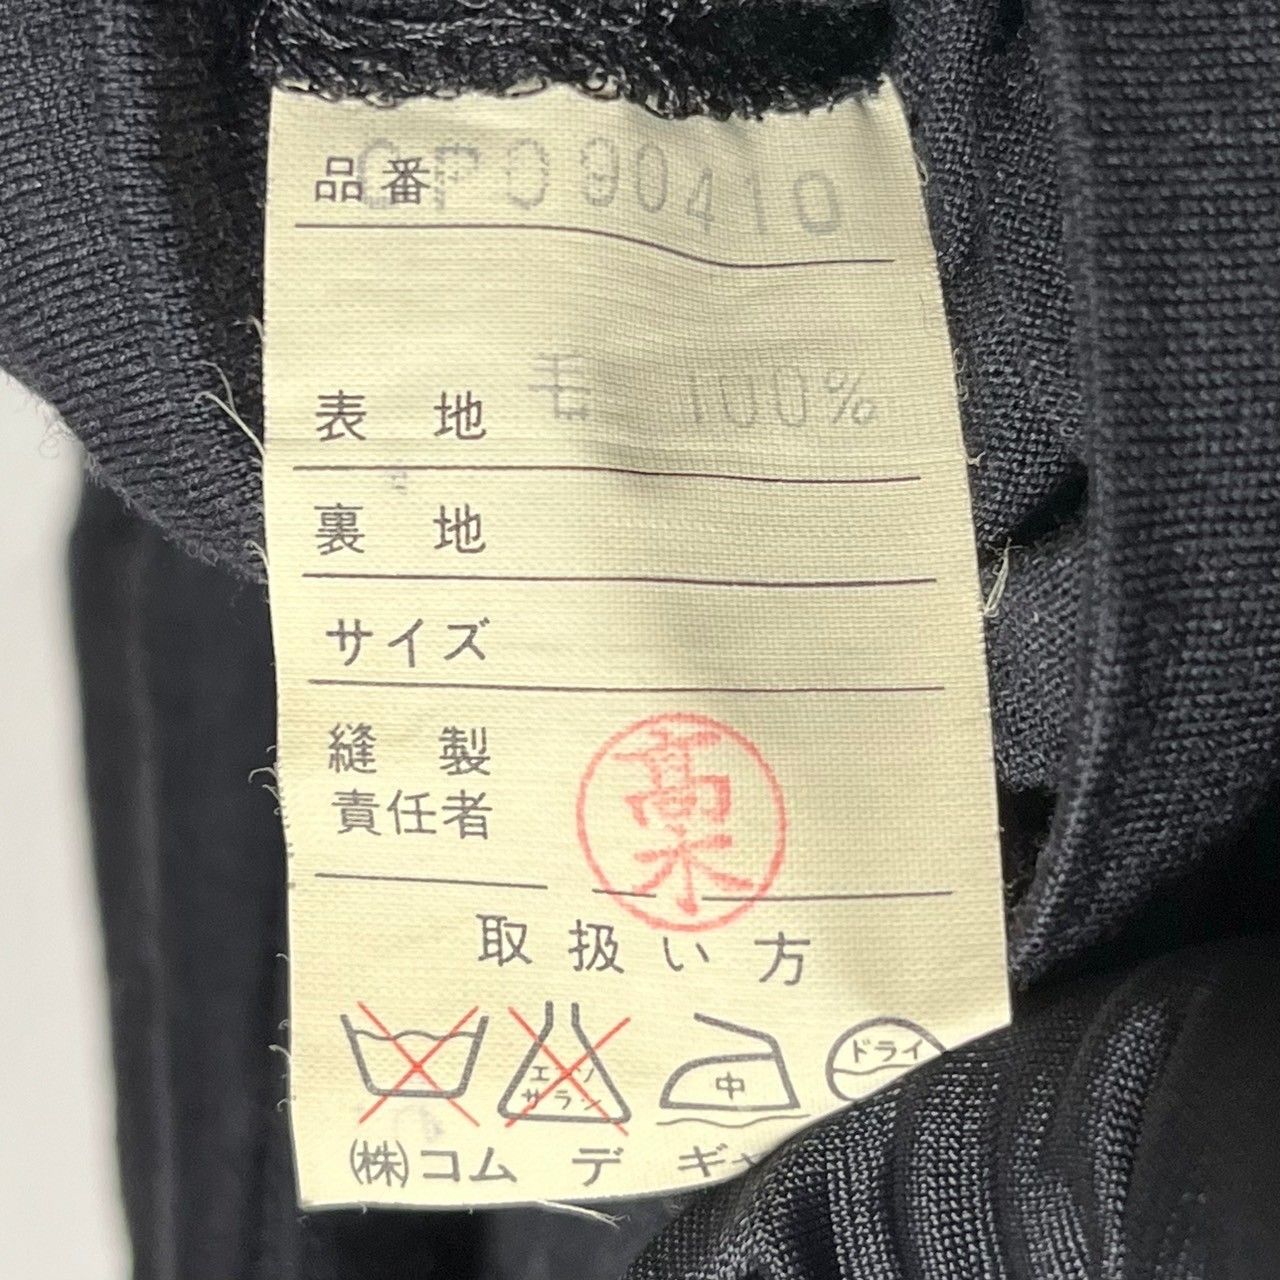 品番 GP090410
表地 毛 100%
裏地
サイズ
縫製
責任者
高水
取扱い方
エンソ
サラン
中
ドライ
(株)コム デ ギャ